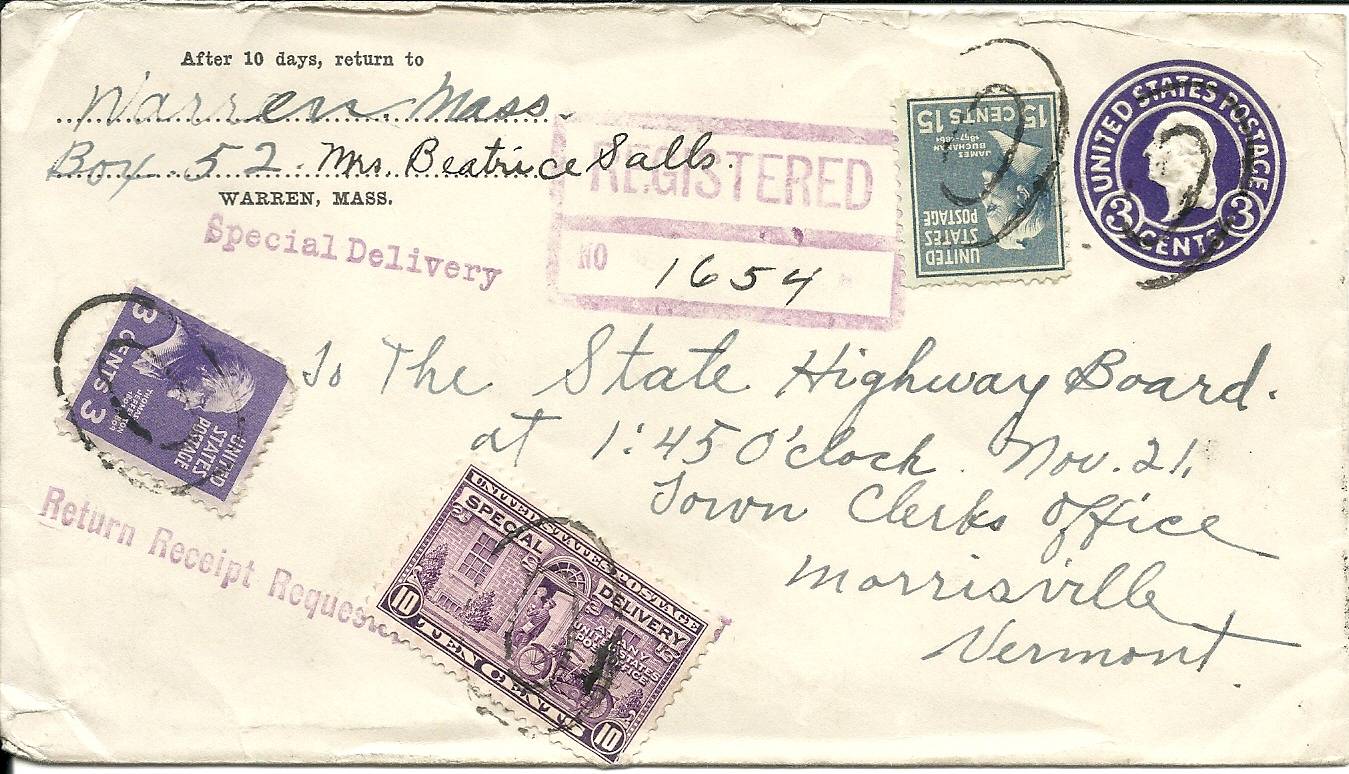 After 10 days, return to
Warren. Mass.
Box 52. Mrs. Beatrice Salls.
WARREN, MASS.
Special Delivery
REGISTERED
NO 1654
15 CENTS 15
JAMES BUCHANAN
1857-1861
UNITED STATES POSTAGE
UNITED STATES POSTAGE
3 CENTS 3
3 CENTS 3
THOMAS JEFFERSON
UNITED STATES POSTAGE
To The State Highway Board.
at 1:45 O'clock. Nov. 21.
Town Clerks Office
Morrisville
Vermont
Return Receipt Reques
UNITED STATES POSTAGE
SPECIAL DELIVERY
AT ANY UNITED STATES POST OFFICE
10 TEN CENTS 10